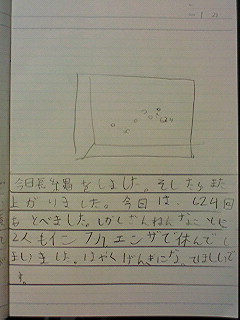 今日長縄をしました。そしたらまた
上がりました。今日は、624回
もとべました。しかしざんねんなことに
2人もインフルエンザで休んでし
まいました。はやくげんきになってほしいで
す。